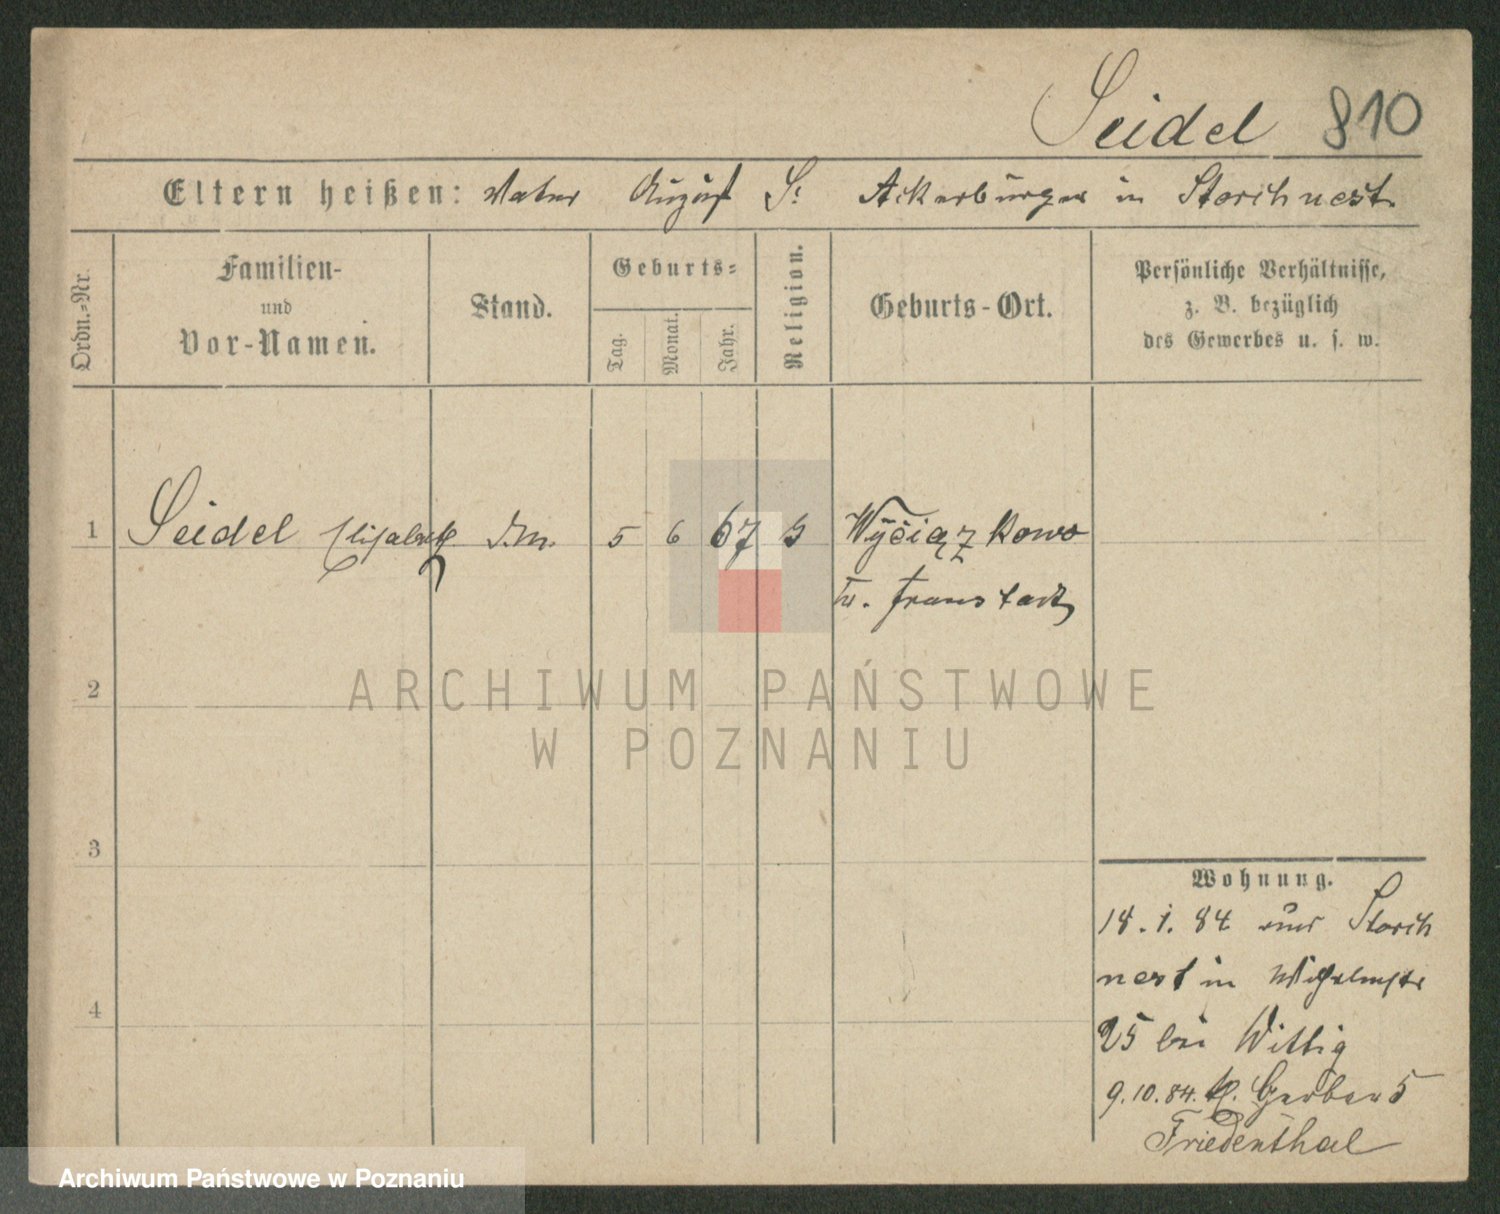 Seidel 810
Eltern heißen: Vater August S. Ackerbürger in Storchnest
Ordn.-Nr.
Familien-
und
Vor-Namen.
Stand.
Geburts-
Tag.
Monat.
Jahr.
Religion.
Geburts-Ort.
Persönliche Verhältnisse,
z. B. bezüglich
des Gewerbes u. s. w.
1 Seidel Elisabeth 5 6 67 Wyciązkowo
Fraustadt
ARCHIWUM PAŃSTWOWE
W POZNANIU
2
3
4
Wohnung.
18.1.84 aus Storch
nest in Wilhelmstr
25 bei Wittig
9.10.84. Gerber 5
Friedenthal
Archiwum Państwowe w Poznaniu